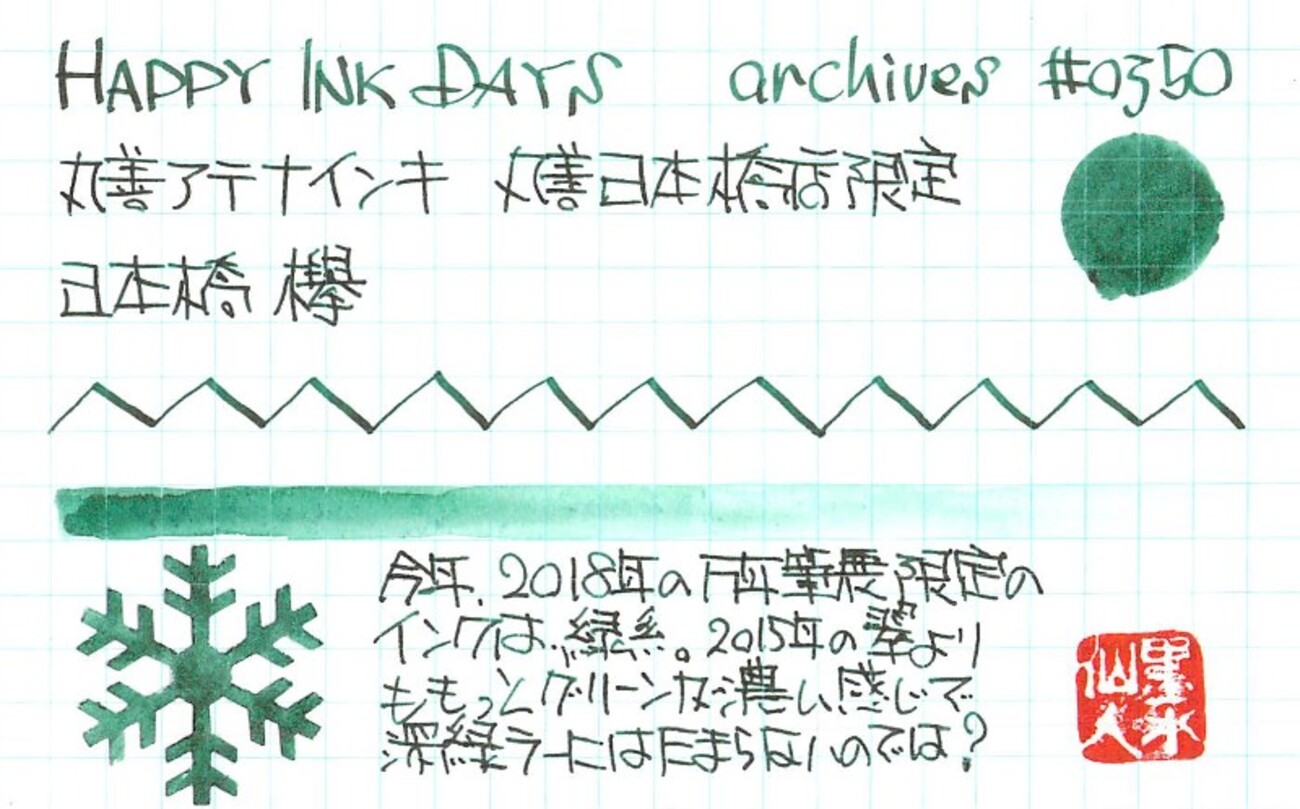 HAPPY INK DAYS archives #0350
丸善アテナインキ 丸善日本橋店限定
日本橋 欅
今年、2018年の万年筆展限定の
インクは、緑系。2015年の翠より
ももっとグリーンな濃い感じで
深緑ラーにはたまらないのでは?
墨水
仙人